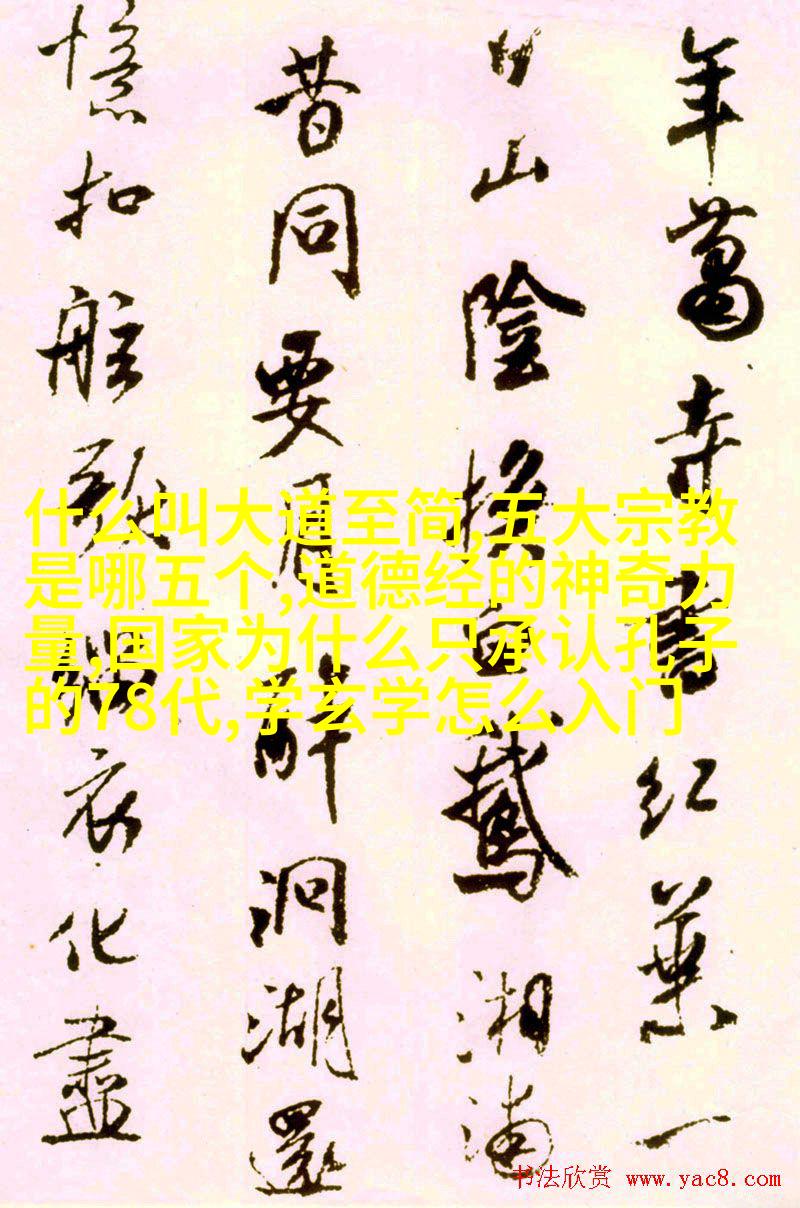 年蕭寺書紅葉一
日山陰換白鵝湘浦
昔同要月醉洞湖還
憶扣舷歌緇衣化盡
什么叫大道至简,五大宗教
是哪五个,道德经的神奇力
量,国家为什么只承认孔子
的78代,学玄学怎么入门
书法欣赏 www.yac8.com